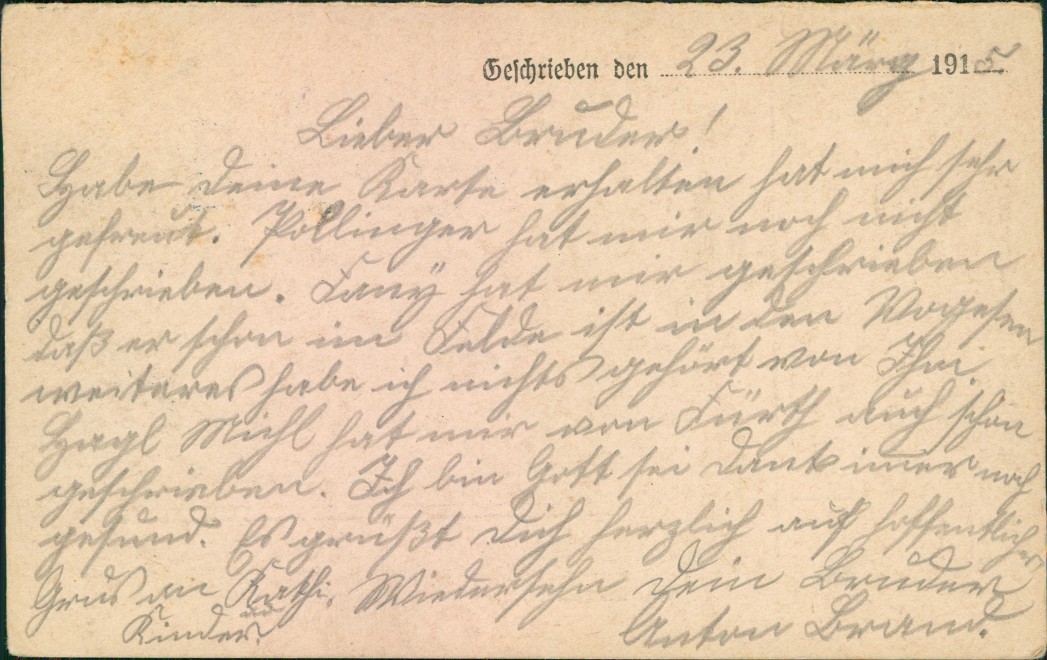 Geschrieben den 23. März 1915
Lieber Bruder!
Habe deine Karte erhalten hat mich sehr
gefreut. Pollinger hat mir noch nicht
geschrieben. Fany hat mir geschrieben
daß er schon im Felde ist in den Vogesen
weiteres habe ich nichts gehört von Ihm
Hagl Michl hat mir von Fürth auch schon
geschrieben. Ich bin Gott sei Dank imer noch
gesund. Es grüßt Dich herzlich auf hoffentliches
Wiedersehn Dein Bruder
Anton Brand.
Grus an Kathi
und
Kinder.